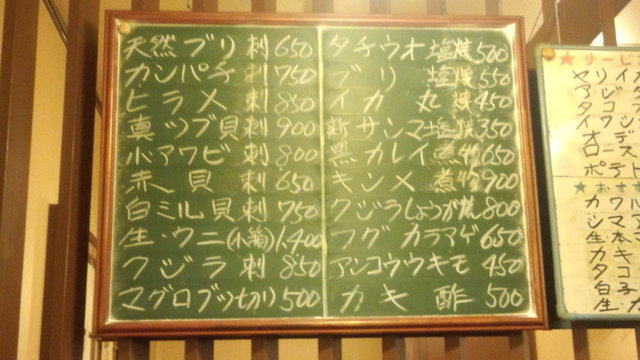 天然ブリ刺650
カンパチ刺750
ヒラメ刺850
真ツブ貝刺900
小アワビ刺800
赤貝刺650
白ミル貝刺750
生ウニ(小箱)1,400
クジラ刺850
マグロブツ切り500
タチウオ塩焼500
ブリ塩焼550
イカ丸焼450
新サンマ塩焼350
黒カレイ煮物650
キンメ煮物900
クジラしょうが焼800
フグカラアゲ650
アンコウウキモ450
カキ酢500
★サービ
ヤリイ
★おす